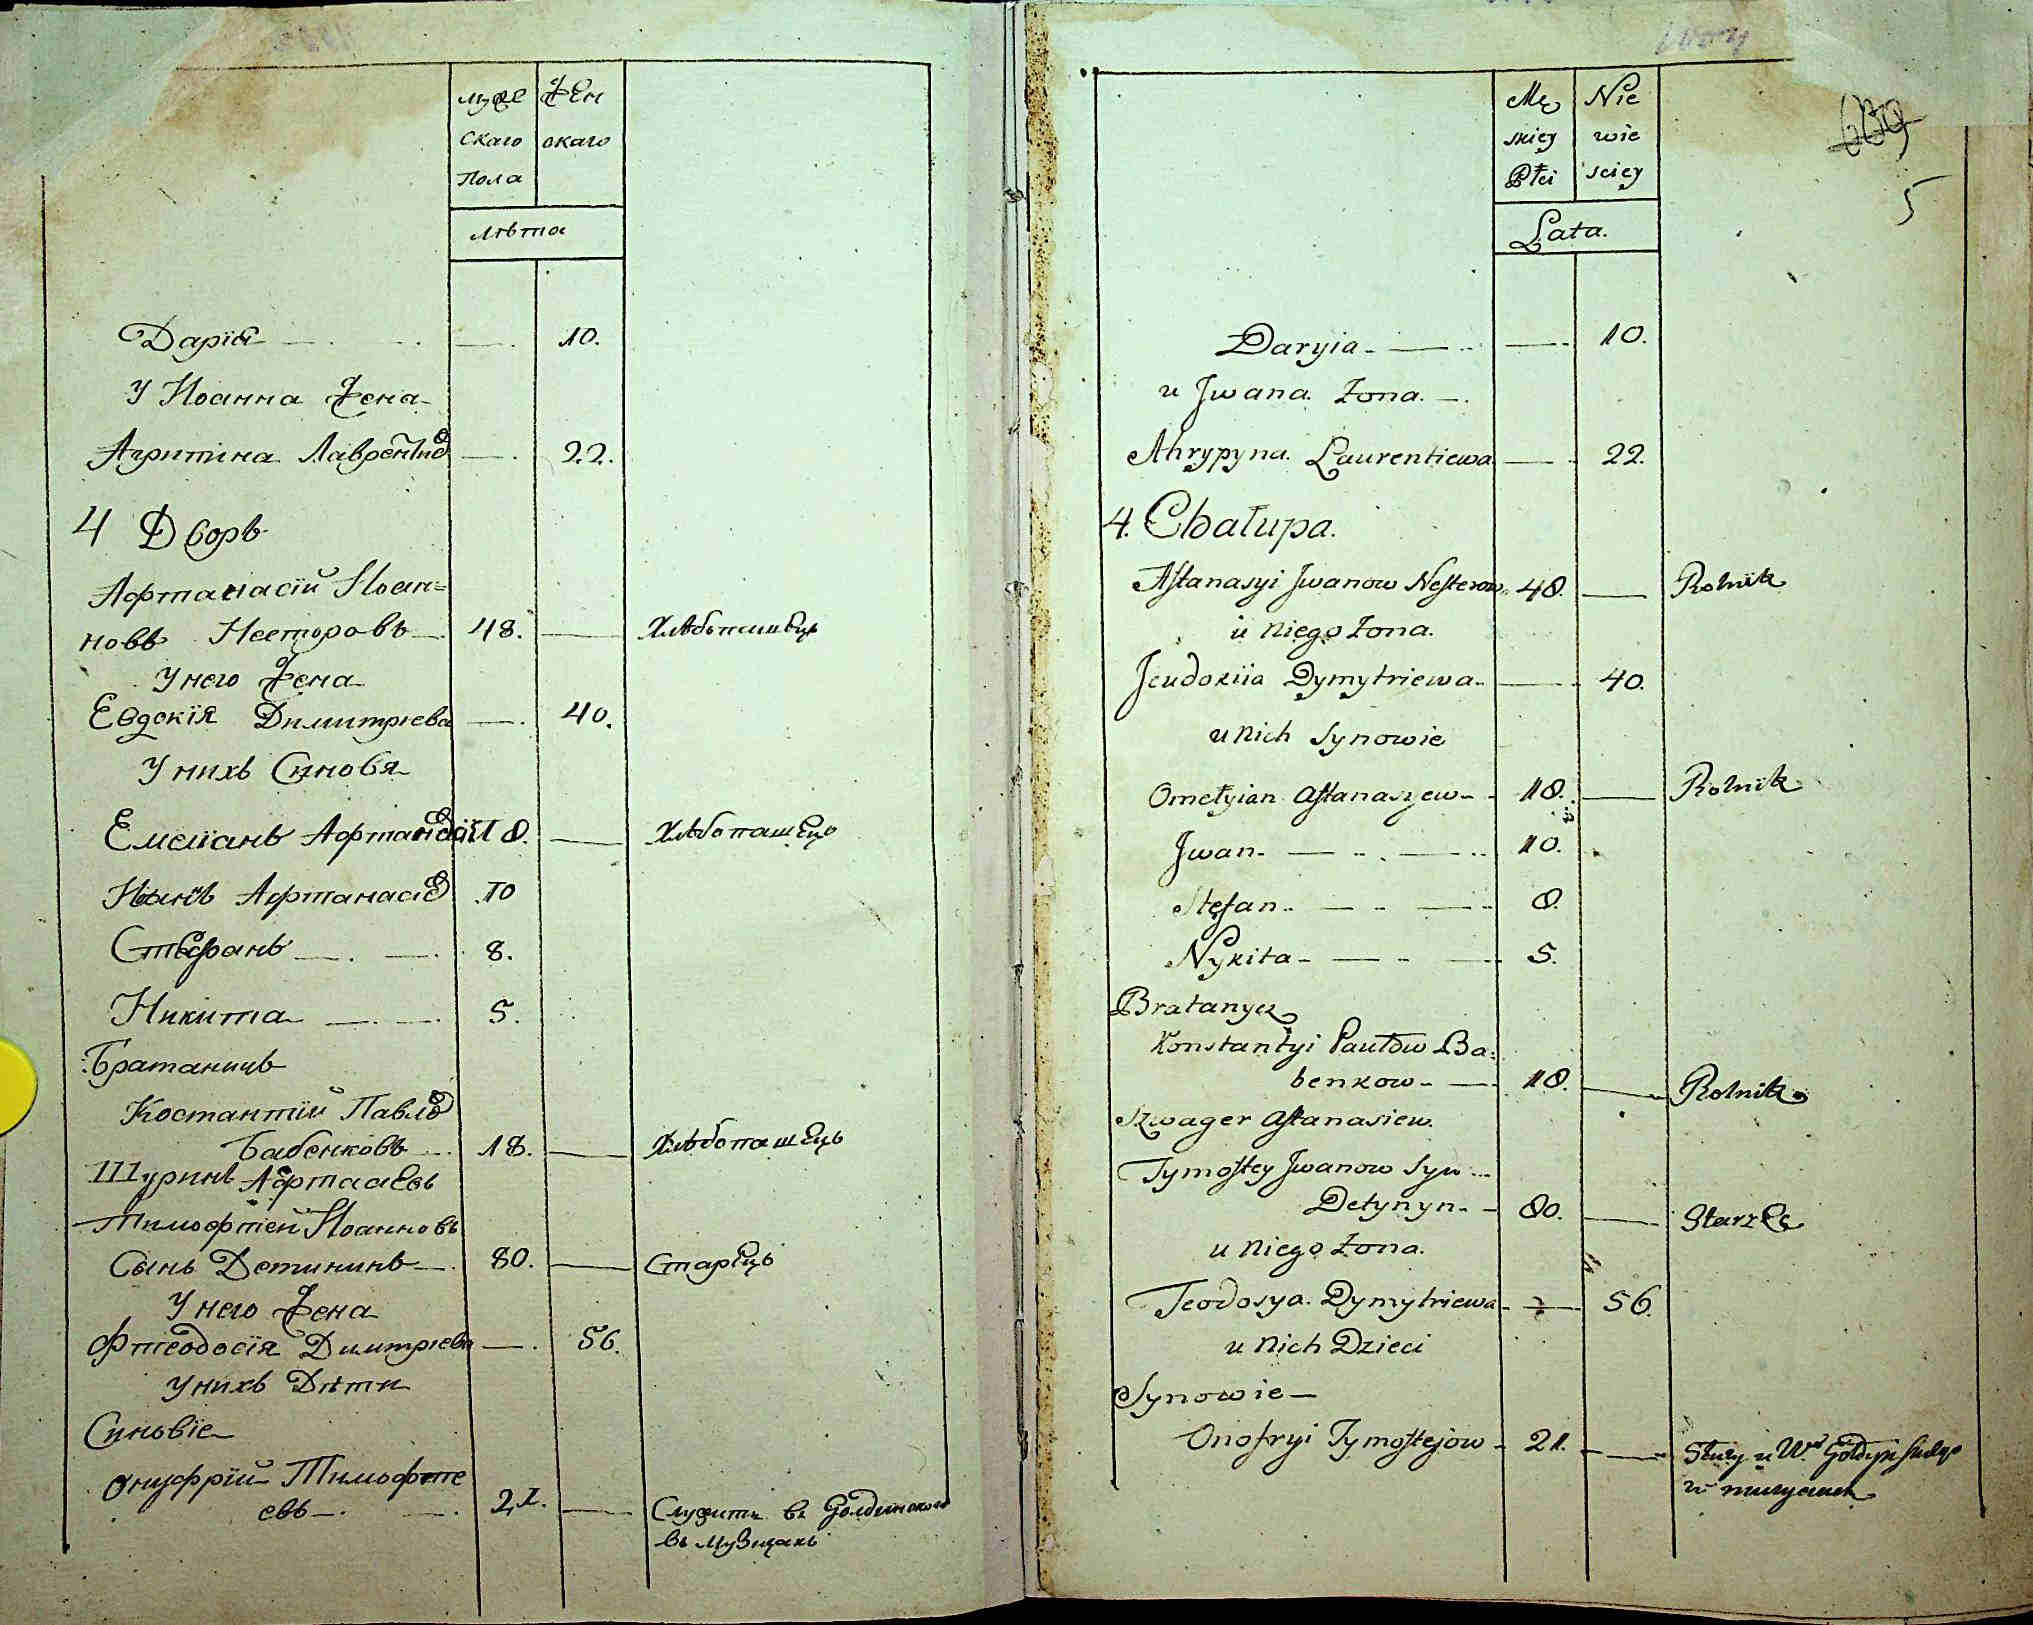 муже
скаго
пола
Жен
скаго
лѣта
Дарія 10.
У Иоанна Жена
Агрипина Лаврентиев 22.
4 Дворъ
Афтанасій Иоан=
новъ Несторовъ 48. Хлѣбопашецъ
У него Жена
Евдокія Димитриева 40.
У нихъ Синовя
Емеліанъ Афтанасіев 18. Хлѣбопашецъ
Иоаннъ Афтанасіев 10
Стефанъ 8.
Никита 5.
Братаничъ
Костантій Павлов
Бабенковъ 18. Хлѣбопашецъ
Шуринъ Афтанасіевъ
Тимофтей Иоанновъ
Сынъ Детининъ 80. Старецъ
У него Жена
Фтеодосія Димитриева 56.
У нихъ Дѣти
Синовіе
Онуфрій Тимофте
евъ 21. Служитъ в Голдинского
въ музыцахъ
Mę
skiey
Płci
Nie
wie
sciey
Lata.
609
5
Daryia 10.
u Jwana Żona.
Ahrypyna Laurentiewa 22.
4. Chałupa.
Aftanasyi Jwanow Nesterow 48. Rolnik
u niego Żona.
Jeudokiia Dymytriewa 40.
u nich Synowie
Omelyian Aftanaszew 18. Rolnik
Jwan 10.
Stefan 8.
Nykita 5.
Bratanycz
Konstantyi Paułow Ba:
benkow 18. Rolnik
Szwager Aftanasiew
Tymoftey Jwanow Syn
Detynyn 80. Starzec
u niego Żona.
Teodosya Dymytriewa 56.
u nich Dzieci
Synowie
Onofryi Tymoftejow 21. Służy u W. Gołdynskiego
w muzycach